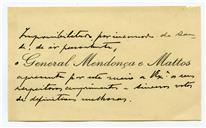 Impossibilitado por incomodo de sau-
de, de ir pessoalmente,
o General Mendonça e Mattos
apresenta por este meio a V. Exª os seus
respeitosos cumprimentos e sinceros votos
de definitivas melhoras.